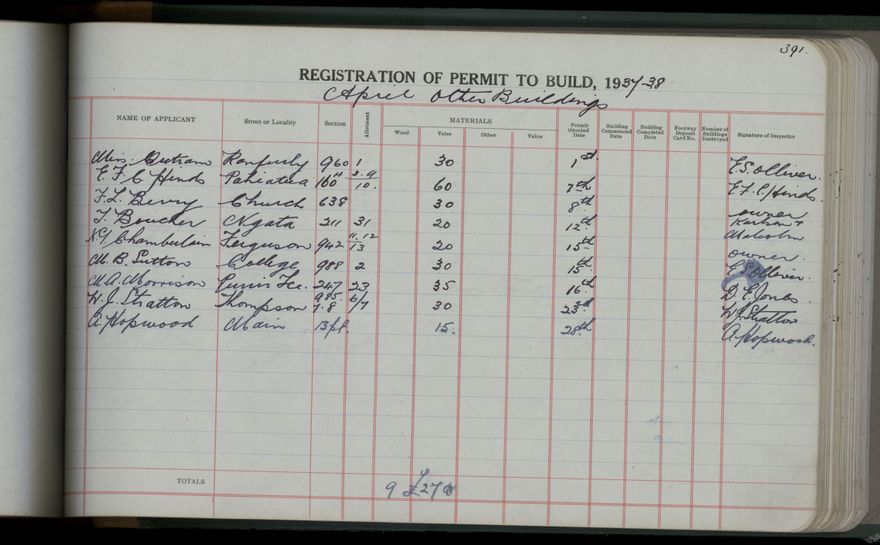 391.
REGISTRATION OF PERMIT TO BUILD, 1937-38
April Other Buildings
NAME OF APPLICANT Street or Locality Section Allotment MATERIALS Wood Value Other Value Permit Granted Date Building Commenced Date Building Completed Date Footway Deposit Card No. Number of Buildings Destroyed Signature of Inspector
Miss. Outram Ranfurly 960 1 30 1st. E.S. Olliver.
E. F. C Hinds Pahiatua 160 8.9 10. 60 7th E F. C. Hinds.
F. L. Berry Church 638 30 8th owner
T. Boucher Ngata 211 31 20 12th Karlson & Malcolm
Chamberlain Ferguson 942 11.12 13 20 15th owner.
M. B. Sutton College 988 2 30 15th E S Olliver.
M A. Morrison Puriri Tce. 247 23 35 16th D. E. Jones.
H. J. Stratton Thompson 985. 7.8 6/7 30 23rd H J Stratton
A. Hopwood Main 13pt. 15. 28th A. Hopwood.
TOTALS 9 £270